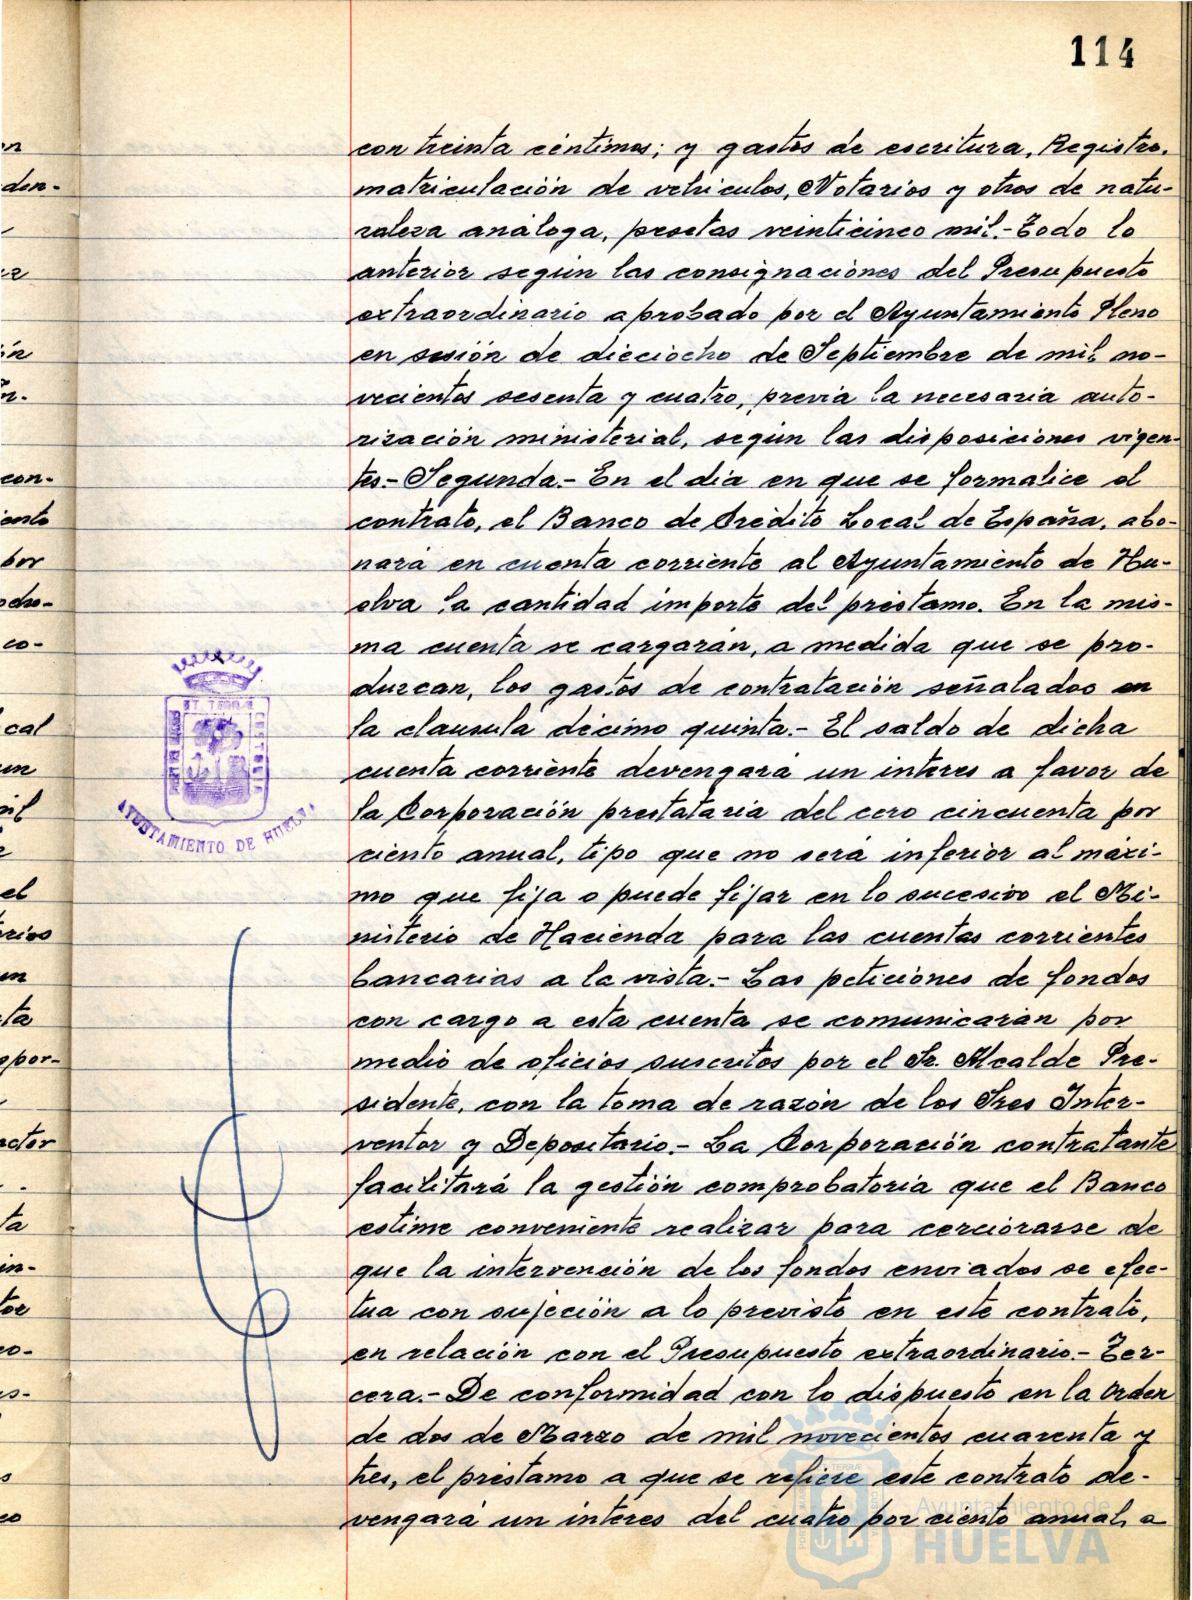 114
con treinta céntimos; y gastos de escritura, Registro,
matriculación de vehículos, Notarios y otros de natu-
raleza análoga, pesetas veinticinco mil.- Todo lo
anterior según las consignaciones del Presupuesto
extraordinario aprobado por el Ayuntamiento Pleno
en sesión de dieciocho de Septiembre de mil no-
vecientos sesenta y cuatro, previa la necesaria auto-
rización ministerial, según las disposiciones vigen-
tes.- Segunda.- En el día en que se formalice el
contrato, el Banco de Crédito Local de España, abo-
nará en cuenta corriente al Ayuntamiento de Hu-
elva la cantidad importe del préstamo. En la mis-
ma cuenta se cargarán, a medida que se pro-
duzcan, los gastos de contratación señalados en
la clausula décimo quinta.- El saldo de dicha
cuenta corriente devengará un interes a favor de
la Corporación prestataria del cero cincuenta por
ciento anual, tipo que no será inferior al máxi-
mo que fija o puede fijar en lo sucesivo el Mi-
nisterio de Hacienda para las cuentas corrientes
bancarias a la vista.- Las peticiones de fondos
con cargo a esta cuenta se comunicarán por
medio de oficios suscritos por el Sr. Alcalde Pre-
sidente, con la toma de razón de los Sres Inter-
ventor y Depositario.- La Corporación contratante
facilitará la gestión comprobatoria que el Banco
estime conveniente realizar para cerciorarse de
que la intervención de los fondos enviados se efec-
tua con sujeción a lo previsto en este contrato,
en relación con el Presupuesto extraordinario.- Ter-
cera.- De conformidad con lo dispuesto en la Orden
de dos de Marzo de mil novecientos cuarenta y
tres, el préstamo a que se refiere este contrato de-
vengará un interes del cuatro por ciento anual, a
AYUNTAMIENTO DE HUELVA
Ayuntamiento de
HUELVA